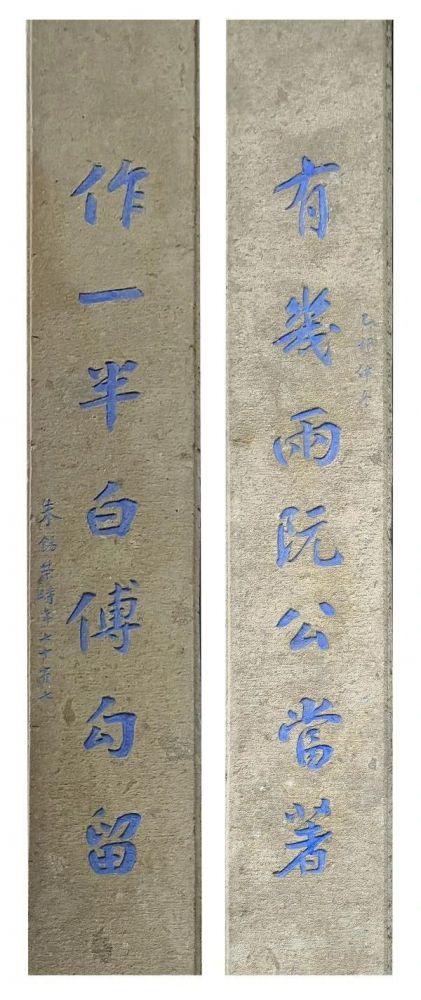 有幾兩阮公當著
作一半白傅勾留
朱錫榮時年七十有七